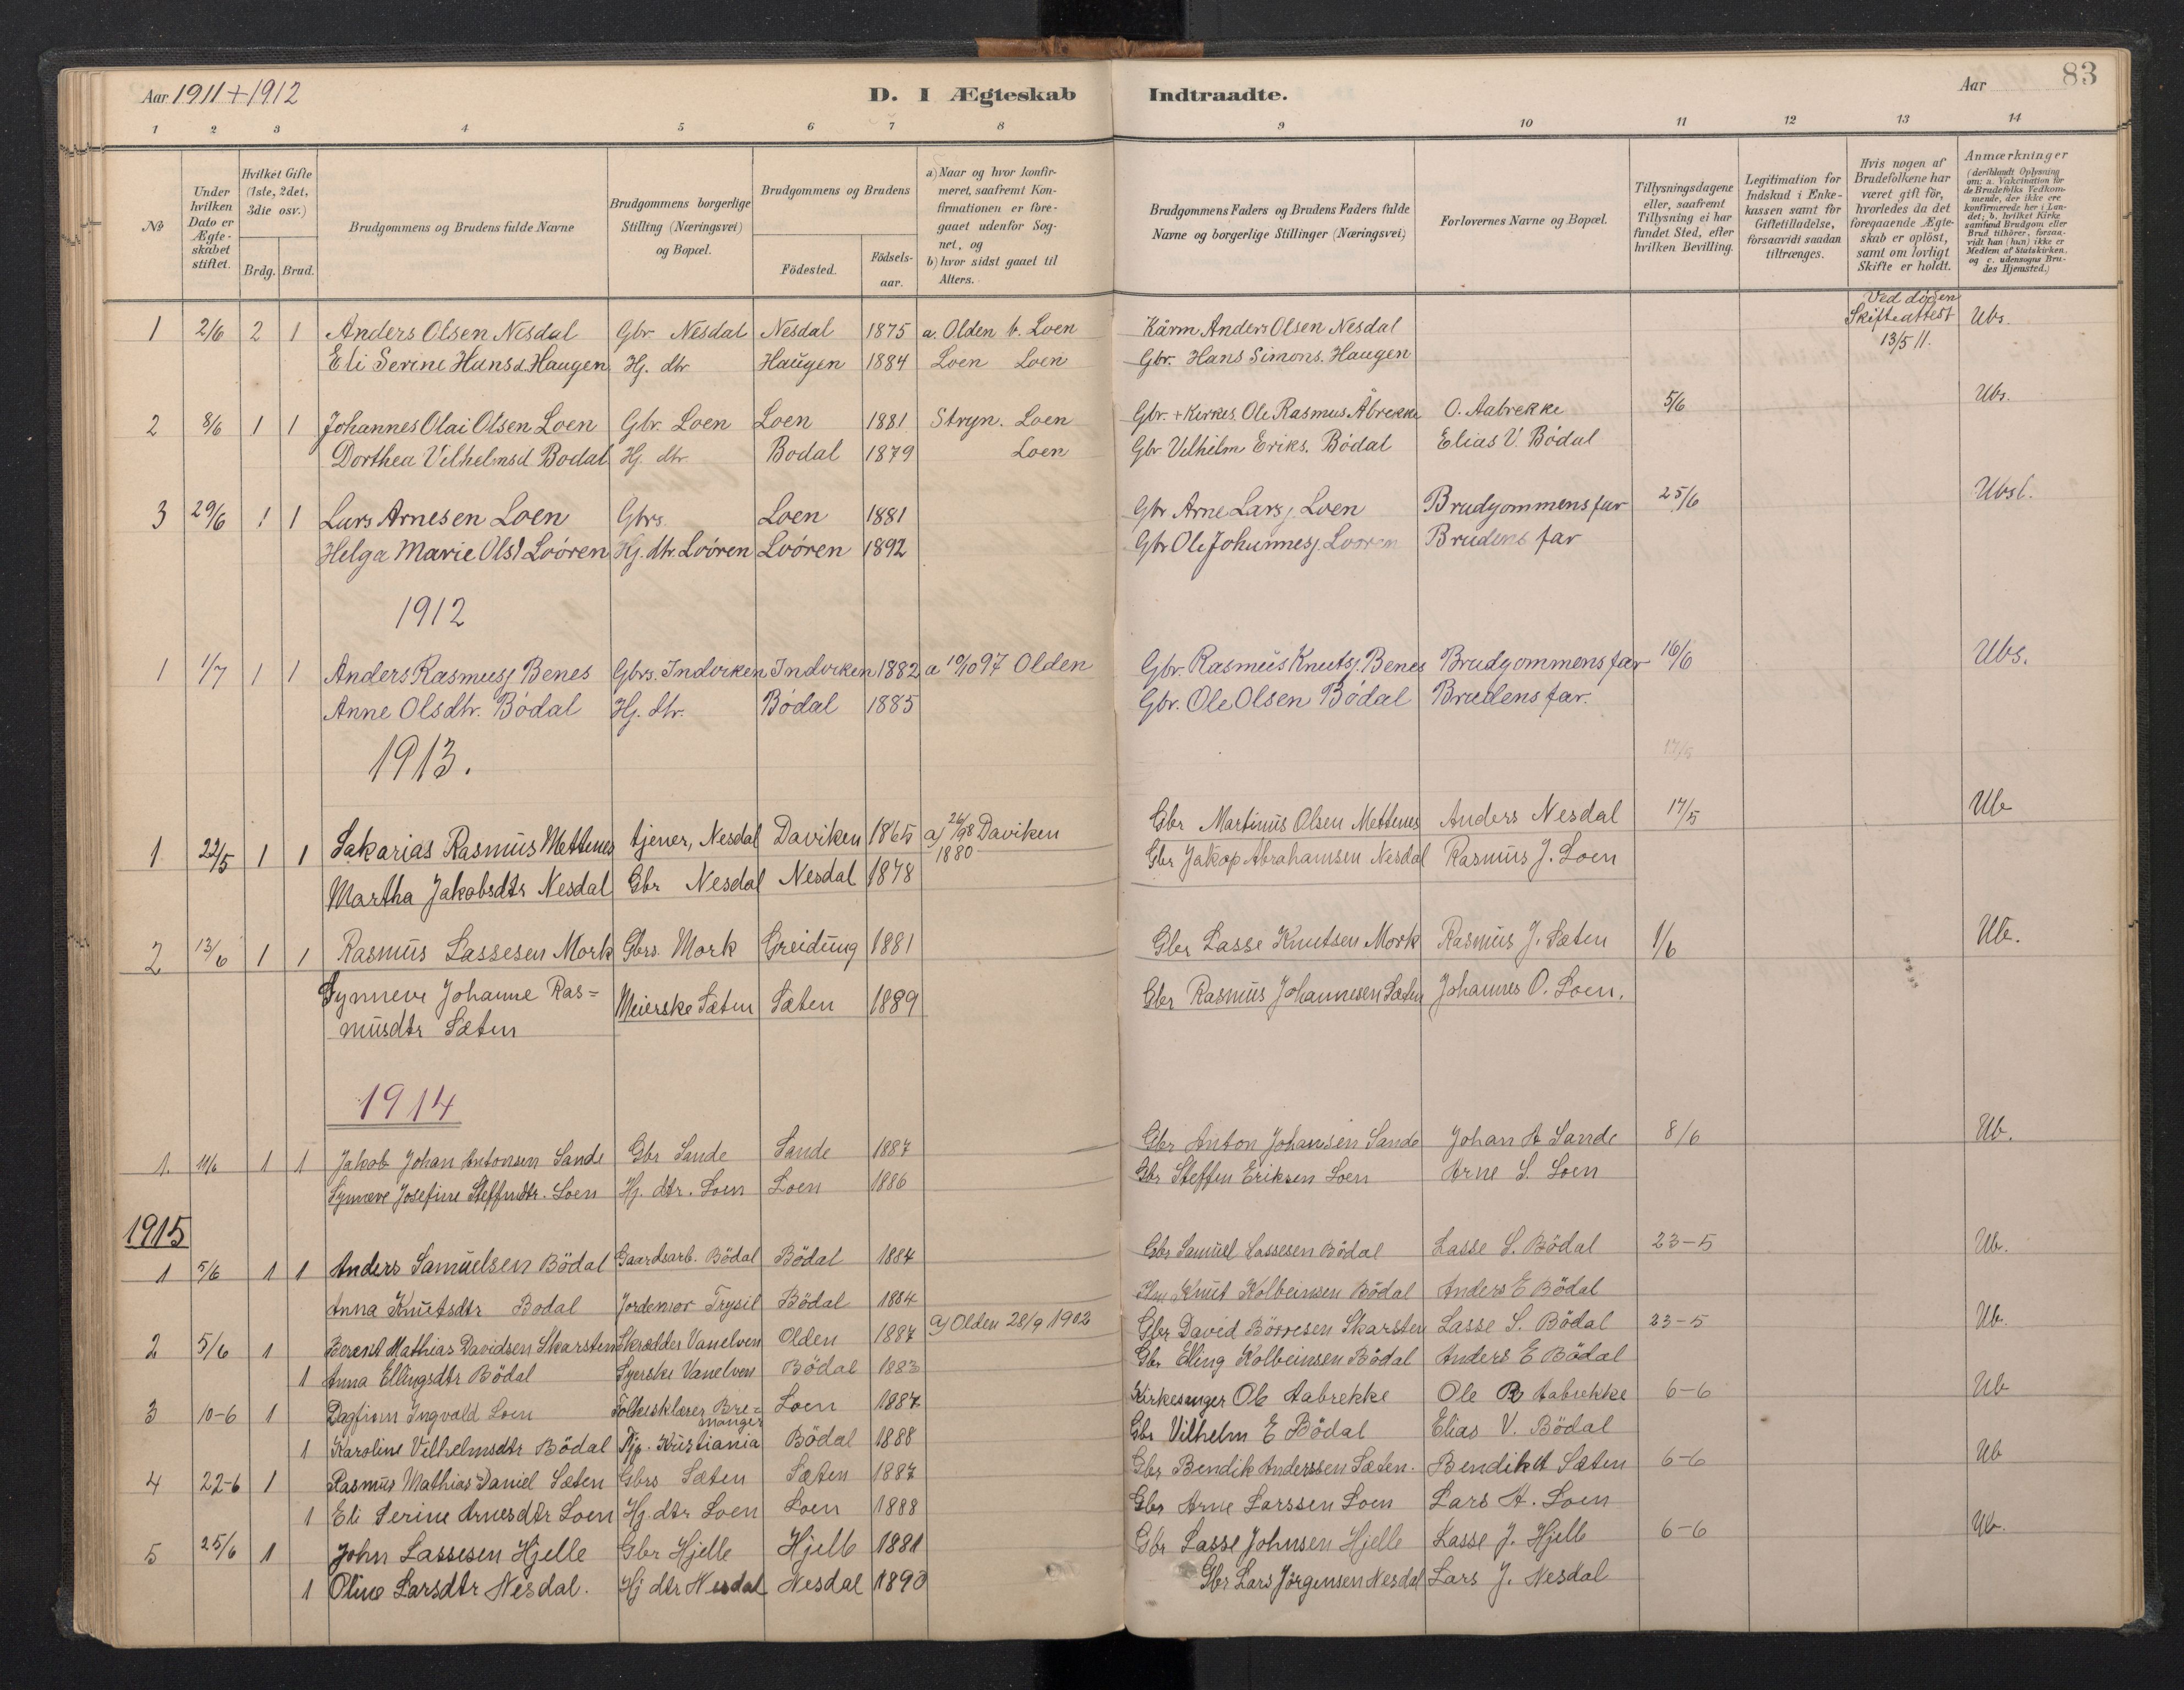 Aar 1911 + 1912
D. I Ægteskab Indtraadte.
Aar
83
1 2 3 4 5 6 7 8 9 10 11 12 13 14
No
Under hvilken Dato er Ægteskabet stiftet.
Hvilket Gifte (1ste, 2det, 3die osv.)
Brdg. Brud.
Brudgommens og Brudens fulde Navne
Brudgommens borgerlige Stilling (Næringsvei) og Bopæl.
Brudgommens og Brudens
Födested.
Födsels-aar.
a) Naar og hvor konfirmeret, saafremt Konfirmationen er foregaaet udenfor Sognet, og
b) hvor sidst gaaet til Alters.
Brudgommens Faders og Brudens Faders fulde Navne og borgerlige Stillinger (Næringsvei)
Forlovernes Navne og Bopæl.
Tillysningsdagene eller, saafremt Tillysning ei har fundet Sted, efter hvilken Bevilling.
Legitimation for Indskud i Enkekassen samt for Giftetilladelse, forsaavidt saadan tiltrænges.
Hvis nogen af Brudefolkene har været gift för, hvorledes da det foregaaende Ægteskab er oplöst, samt om lovligt Skifte er holdt.
Anmærkninger (deriblandt Oplysning om: a. Vakcination for de Brudefolks Vedkommende, der ikke ere konfirmerede her i Landet; b. hvilket Kirkesamfund Brudgom eller Brud tilhörer, forsaavidt han (hun) ikke er Medlem af Statskirken, og c. udensogns Brudes Hjemsted.)
1 2/6 2 1 Anders Olsen Nesdal Gbr. Nesdal Nesdal 1875 a. Olden b. Loen Kårm Anders Olsen Nesdal Ved døden Skifteattest 13/5 11. Ubs.
Eli Serine Hansd. Haugen Hj. dtr Haugen 1884 Loen Loen Gbr. Hans Simons. Haugen
2 8/6 1 1 Johannes Olai Olsen Loen Gbr. Loen Loen 1881 Stryn. Loen Gbr. + Kirkes. Ole Rasmus Åbrekke O. Aabrekke 5/6 Ubs.
Dorthea Vilhelmsd Bødal Hj. dtr Bødal 1879 Loen Gbr Vilhelm Eriks. Bødal Elias V. Bødal
3 29/6 1 1 Lars Arnesen Loen Gbrs. Loen 1881 Gbr Arne Larsj. Loen Brudgommens far 25/6 Ubsl.
Helga Marie Olsd Loören Hj. dtr. Loören Loören 1892 Gbr Ole Johannesj. Looren Brudens far
1912
1 1/7 1 1 Anders Rasmusj Benes Gbrs. Indviken Indviken 1882 a 10/10 97 Olden Gbr. Rasmus Knutsj. Benes Brudgommens far 16/6 Ubs.
Anne Olsdtr. Bødal Hj. dtr. Bødal 1885 Gbr. Ole Olsen Bødal Brudens far.
1913.
17/5
1 22/5 1 1 Sakarias Rasmus Mettenes tjener, Nesdal Daviken 1865 a) 26/98 Daviken 1880 Gbr Martinus Olsen Mettenes Anders Nesdal 17/5 Ub
Martha Jakobsdtr Nesdal Gbr Nesdal Nesdal 1878 Gbr Jakop Abrahamsen Nesdal Rasmus J. Loen
2 13/6 1 1 Rasmus Lassesen Mork Gbrs. Mork Greidung 1881 Gbr Lasse Knutsen Mork Rasmus J. Sæten 1/6 Ub.
Synneve Johanne Ras=
musdtr Sæten Meierske Sæten Sæten 1889 Gbr Rasmus Johannesen Sæten Johannes O. Loen.
1914
1. 11/6 1 1 Jakob Johan Antonsen Sande Gbr Sande Sande 1887 Gbr Anton Johansen Sande Johan A Sande 8/6 Ub.
Synneve Josefine Steffendtr. Loen Hj. dtr. Loen Loen 1886 Gbr Steffen Eriksen Loen Arne S. Loen
1915
1 5/6 1 1 Anders Samuelsen Bödal Gaardsarb. Bödal Bödal 1884 Gbr Samuel Lassesen Bödal Lasse S. Bödal 23-5 Ub.
Anna Knutsdtr Bodal Jordemor Trysil Bödal 1884 Knut Kolbeinsen Bödal Anders E Bödal
2 5/6 1 Berent Mathias Davidsen Skarsten Skrædder Vanelven Olden 1887 a) Olden 28/9 1902 Gbr David Börresen Skarsten Lasse S. Bödal 23-5 Ub.
1 Anna Ellingsdtr Bödal Syerske Vanelven Bödal 1883 Gbr Elling Kolbeinsen Bödal Anders E Bödal
3 10-6 1 Dagfinn Ingvald Loen Folkeskl­ærer Bre=
manger Loen 1887 Kirkesanger Ole Aabrekke Ole R Aabrekke 6-6 Ub
1 Karoline Vilhelmsdtr Bödal Kristiania Bödal 1888 Gbr Vilhelm E Bödal Elias V. Bödal
4 22-6 1 Rasmus Mathias Daniel Sæten Gbrs Sæten Sæten 1887 Gbr Bendik Anderssen Sæten. Bendik A Sæten 6-6 Ub
1 Eli Serine Arnesdtr Loen Hj. dtr Loen Loen 1888 Gbr Arne Larssen Loen Lars A. Loen
5 25/6 1 John Lassesen Hjelle Gbr Hjelle Hjelle 1881 Gbr Lasse Johnsen Hjelle Lasse J. Hjelle 6-6 Ub.
1 Oline Larsdtr Nesdal. Hj dtr Nesdal Nesdal 1890 Gbr Lars Jörgensen Nesdal Lars J. Nesdal